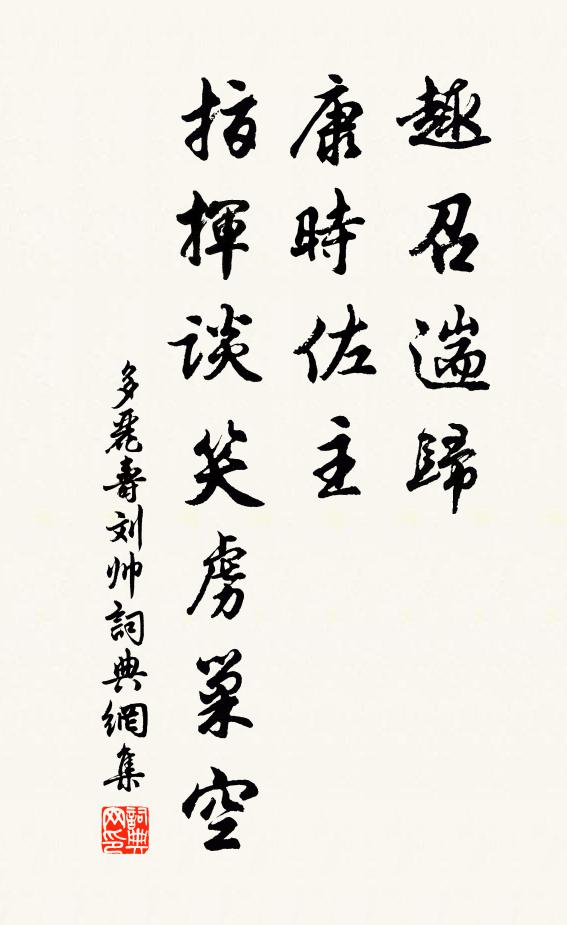 趣召遄歸
康時佐主
指揮談笑虜巢空
多麗壽刘帅詞典網集
詞典
网印